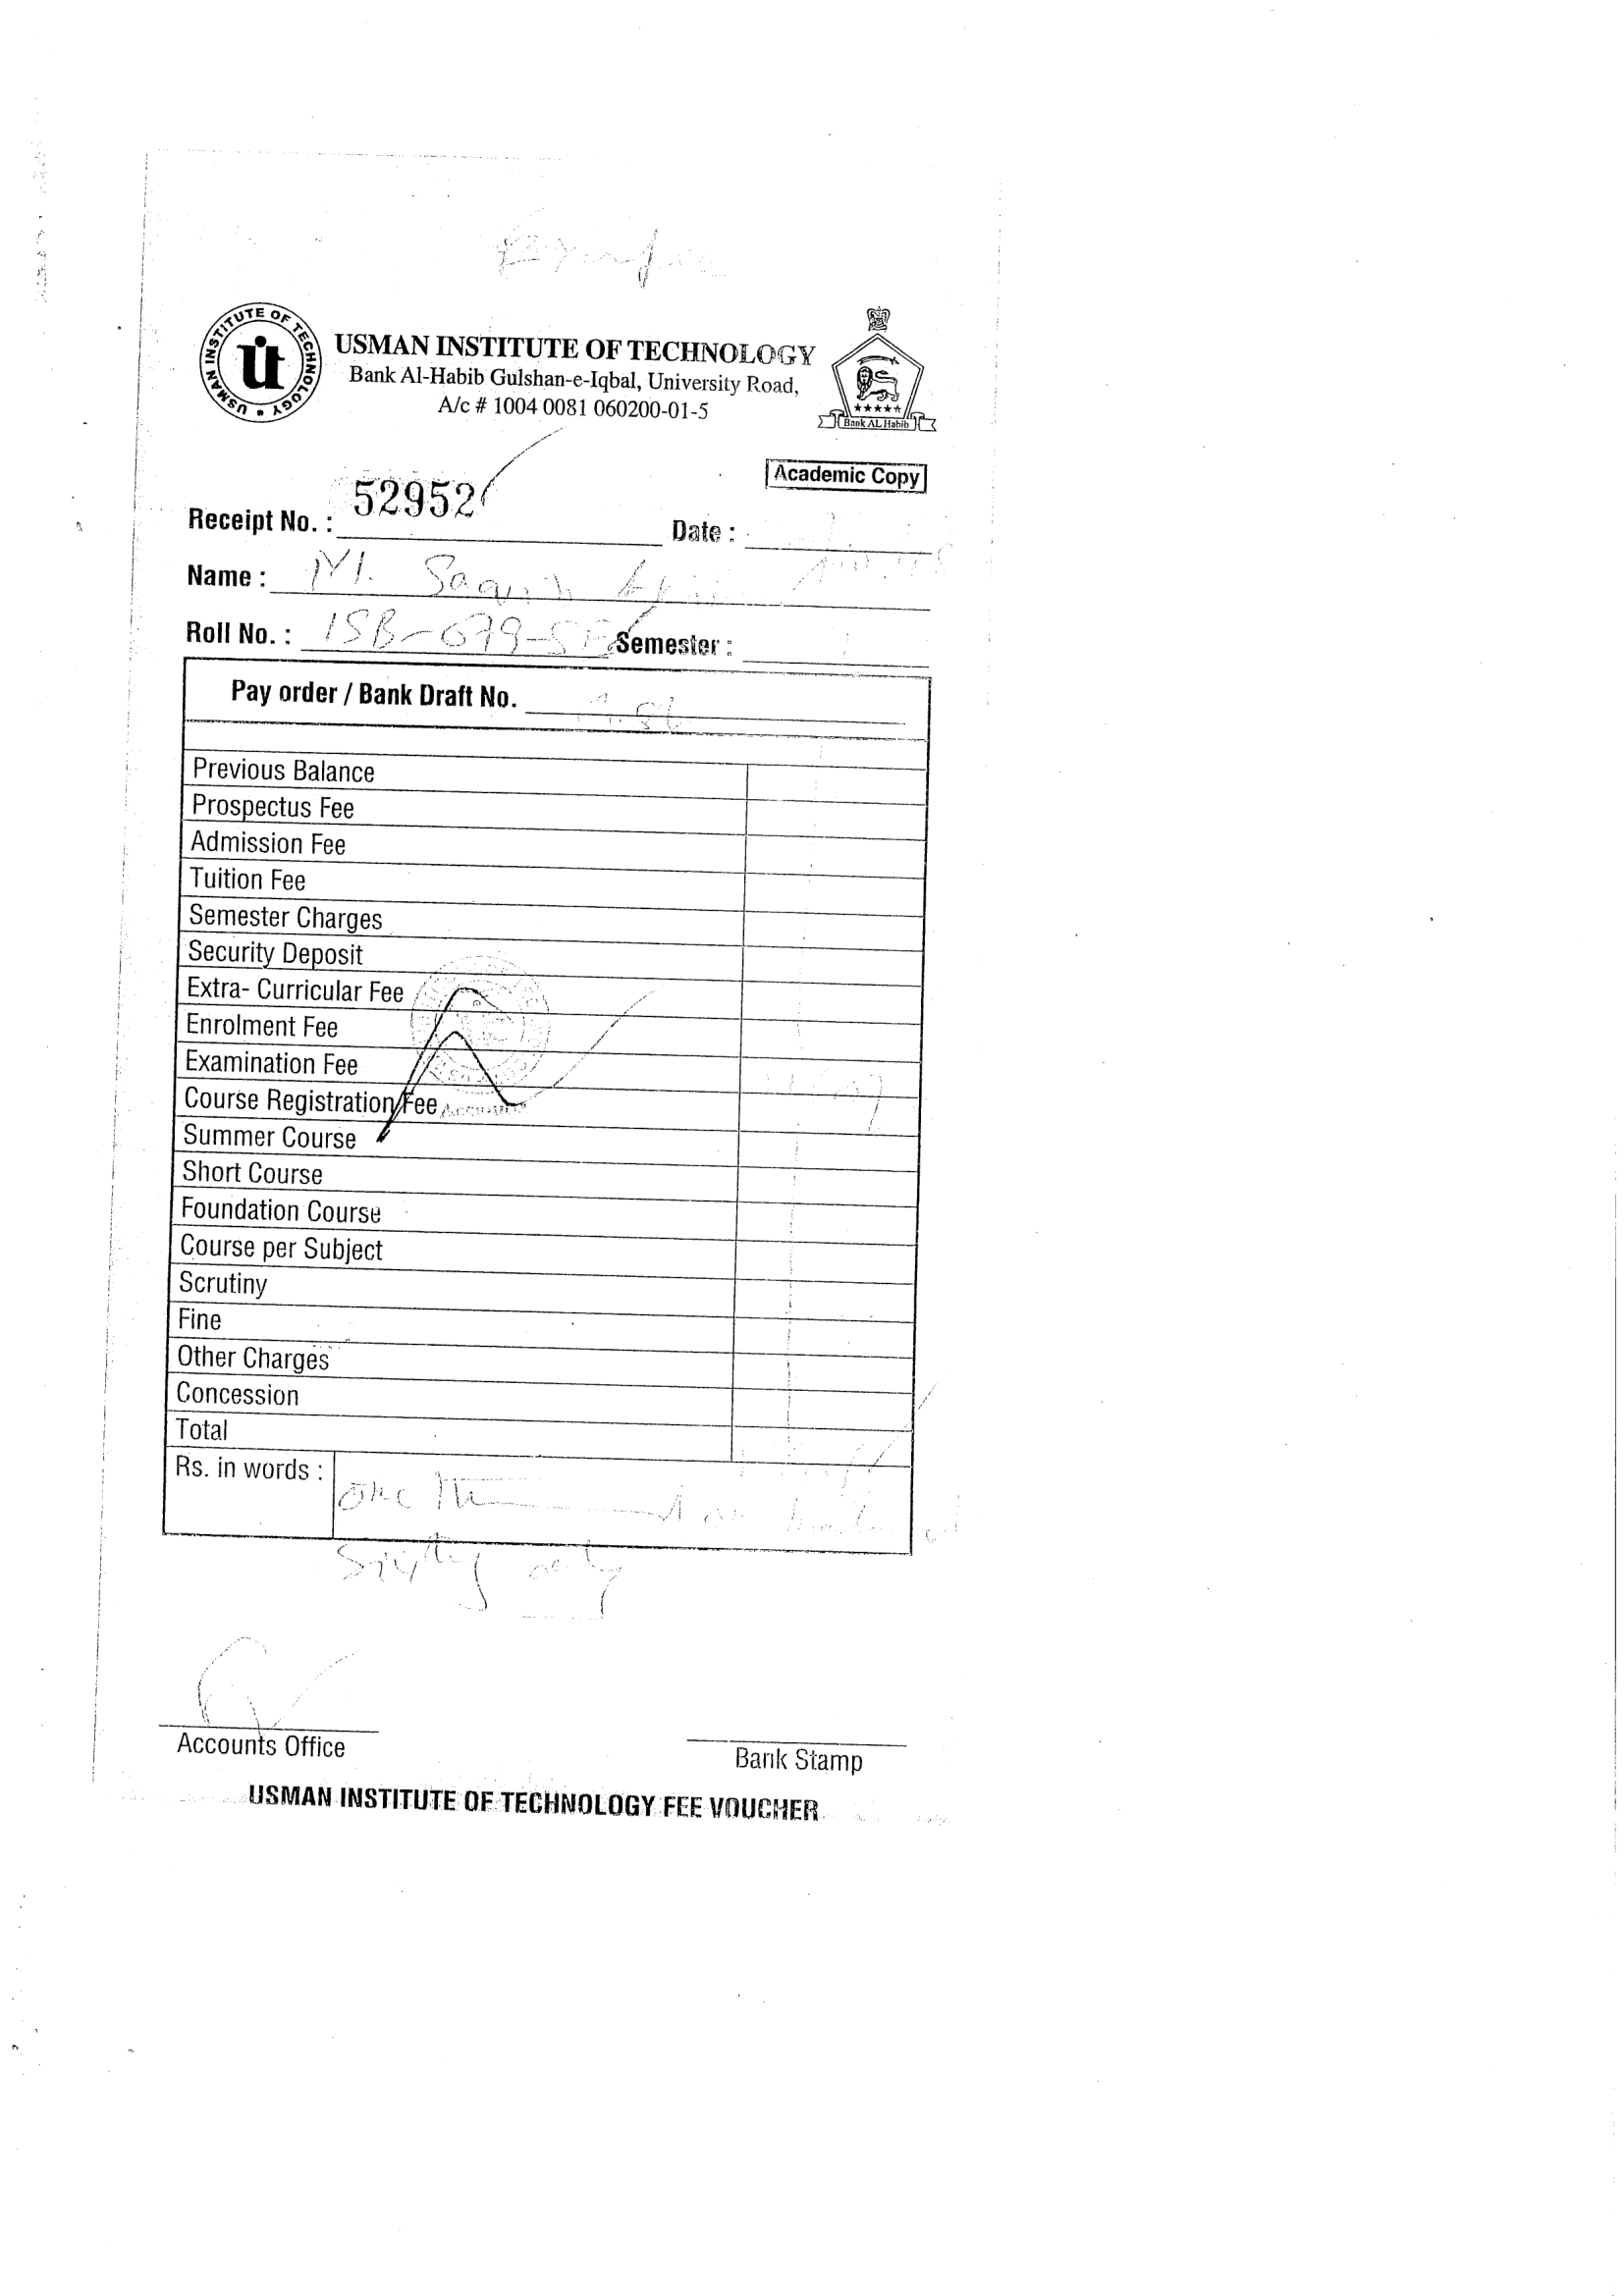 USMAN INSTITUTE OF TECHNOLOGY
USMAN INSTITUTE OF TECHNOLOGY
Bank Al-Habib Gulshan-e-Iqbal, University Road,
A/c # 1004 0081 060200-01-5
Bank AL Habib
Academic Copy
Receipt No. : 52952
Date :
Name : M. Saqib
Roll No. : 15B-079-SE Semester :
Pay order / Bank Draft No.
Previous Balance
Prospectus Fee
Admission Fee
Tuition Fee
Semester Charges
Security Deposit
Extra- Curricular Fee
Enrolment Fee
Examination Fee
Course Registration Fee
Summer Course
Short Course
Foundation Course
Course per Subject
Scrutiny
Fine
Other Charges
Concession
Total
Rs. in words : One
Sixty only
Accounts Office
Bank Stamp
USMAN INSTITUTE OF TECHNOLOGY FEE VOUCHER